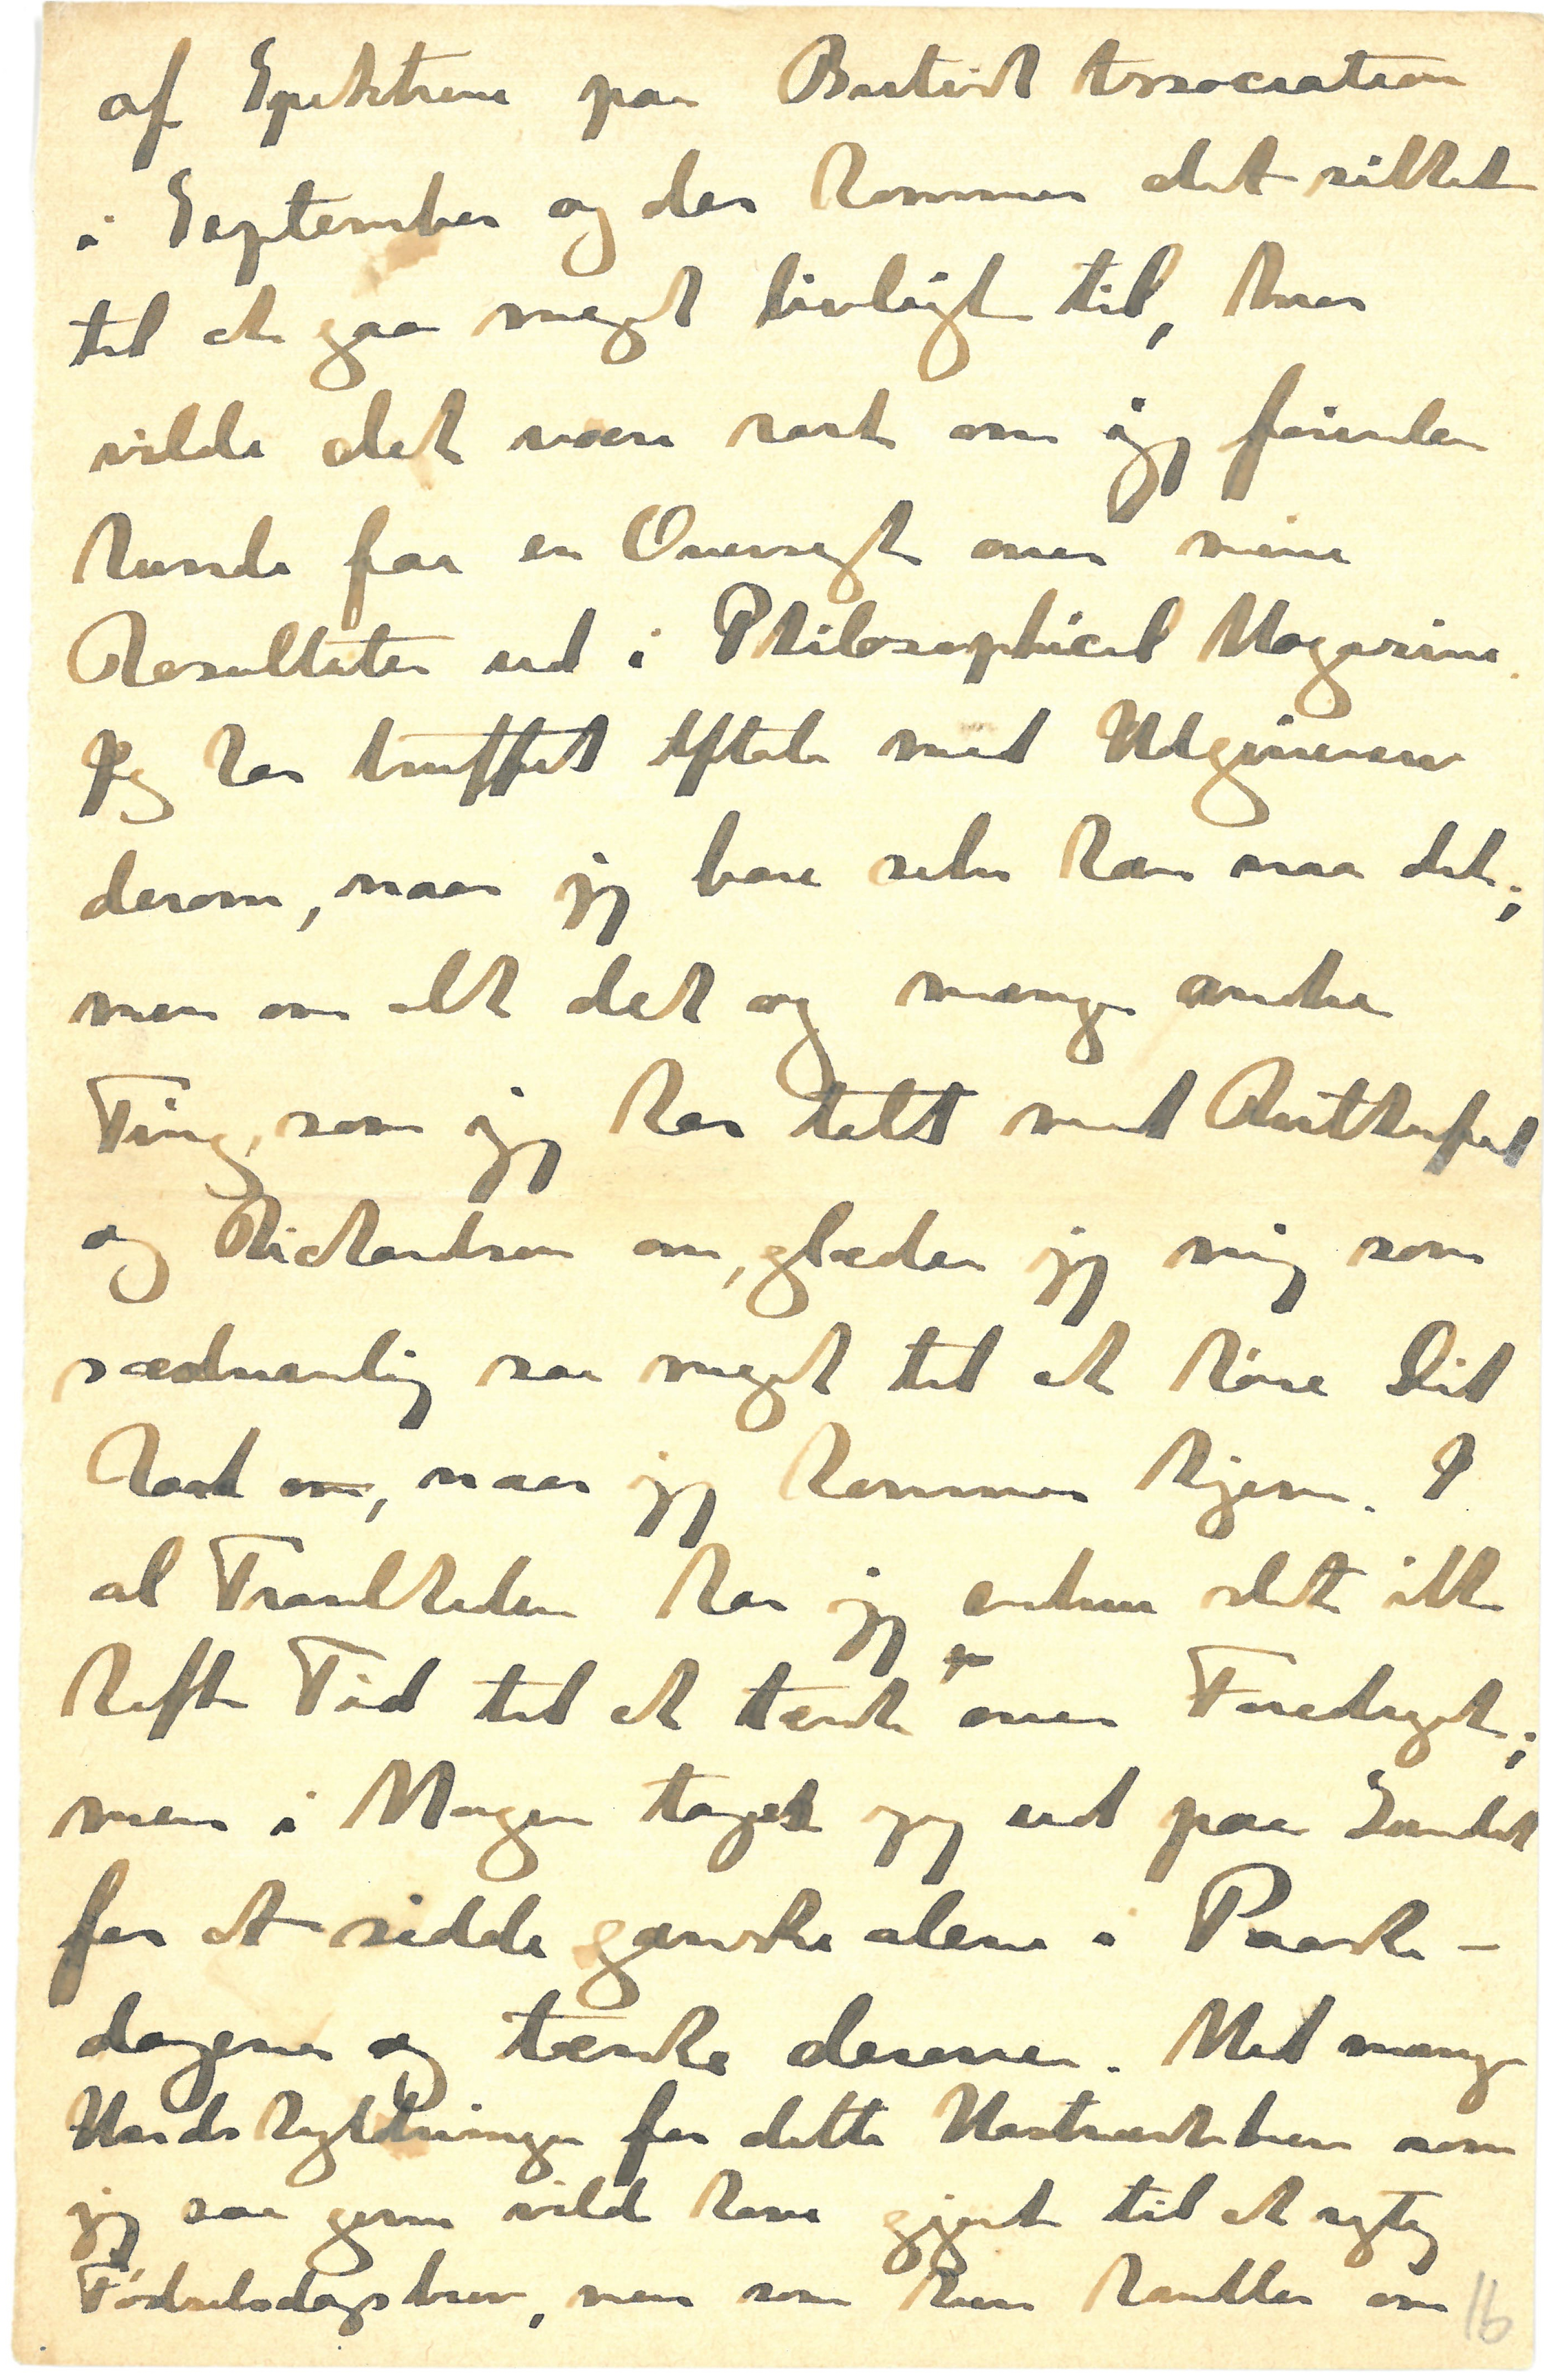 af Spektrene paa British Association
i September og der kommer det sikkert
til at gaa meget livligt til, hvor
vilde det være rart om jeg forinden
kunde faa en Oversigt over mine
Resultater ud i Philosophical Magazine.
Jeg har truffet Aftale med Udgiveren
derom, naar jeg bare selv kan naa det;
men om alt det og mange andre
Ting, som jeg har talt med Rutherford
og Richardson om, glæder jeg mig som
sædvanlig saa meget til at høre Dit
Raad om, naar jeg kommer hjem. I
al Travlheden har jeg endnu slet ikke
haft Tid til at tænke over Foredraget;
men i Morgen tager jeg ud paa Landet
for at sidde ganske alene i Paaske-
dagene og tænke derover. Med mange
Undskyldninger for dette Hastværksbrev som
jeg saa gerne vild have gjort til et rigtig
Fødselsdagsbrev, men som kun handler om
16